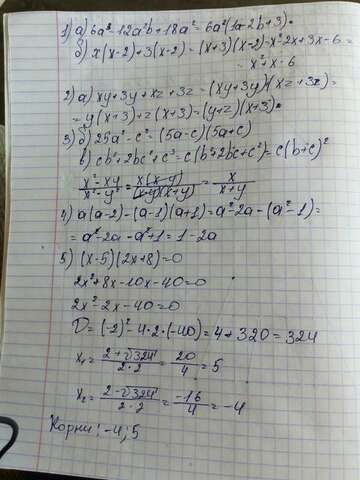 1) а) 6a³ - 12a²b + 18a² = 6a²(a - 2b + 3).
б) x(x-2)+3(x-2) = (x+3)(x-2) = x² 2x + 3x - 6 =
= x² + x - 6
2) а) xy + 3y + xz + 3z = (xy + 3y)(xz + 3z) =
= y(x+3) + z(x+3) = (y+z)(x+3).
3) б) 25a² - c² = (5a-c)(5a+c)
в) cb² + 2bc² + c³ = c(b² + 2bc + c²) = c(b+c)²
x² - xy / x² - y² = x(x-y) / (x-y)(x+y) = x / x+y
4) a(a-2) - (a-1)(a+1) = a² - 2a - (a² - 1) =
= a² - 2a - a² + 1 = 1 - 2a
5) (x-5)(2x+8) = 0
2x² + 8x - 10x - 40 = 0
2x² - 2x - 40 = 0
D = (-2)² - 4·2·(-40) = 4 + 320 = 324
x₁ = 2+√324 / 2·2 = 20 / 4 = 5
x₂ = 2-√324 / 2·2 = -16 / 4 = -4
Корни: -4; 5